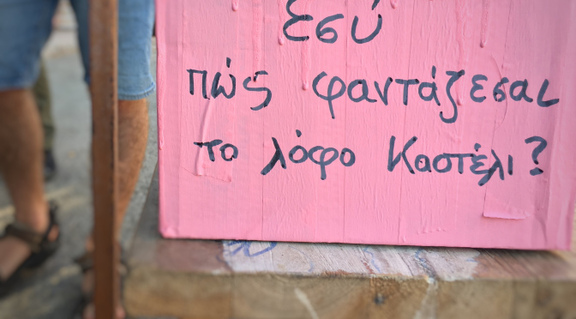 εσύ
πώς φαντάζεσαι
το λόφο Καστέλι?